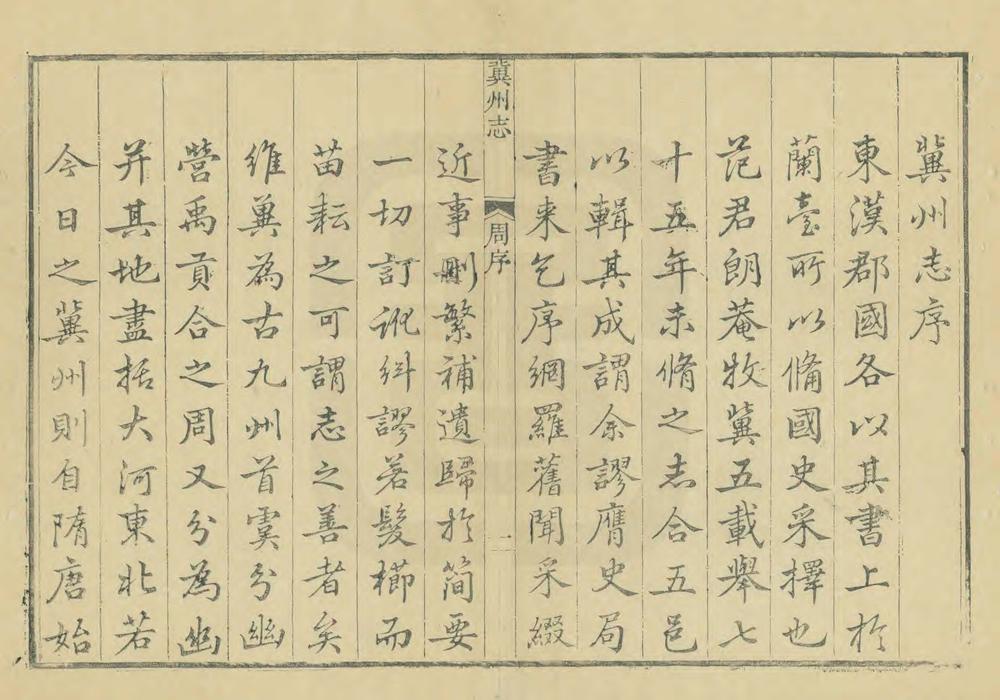 冀州志序
東漢郡國各以其書上於
蘭臺所以備國史采擇也
范君朗菴牧冀五載舉七
十五年未脩之志合五邑
以輯其成謂余謬膺史局
書来乞序網羅舊聞采綴
冀州志
周序
一
近事刪繁補遺歸於简要
一切訂訛糾謬若髮櫛而
苗耘之可謂志之善者矣
維冀為古九州首虞分幽
營禹貢合之周又分為幽
并其地盡括大河東北若
今日之冀州則自隋唐始